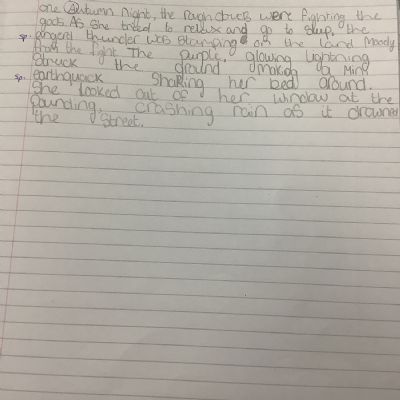 one Autumn night, the rough clouds were fighting the
gods. As she tried to relax and go to sleep, the
sp. angent thunder was stamping on the land Moody
from the fight. The purple, glowing lightning
struck the ground making a Mini
sp. earthquack shaking her bed around.
She looked out of her window at the
pounding, crashing rain as it drowned
the street.